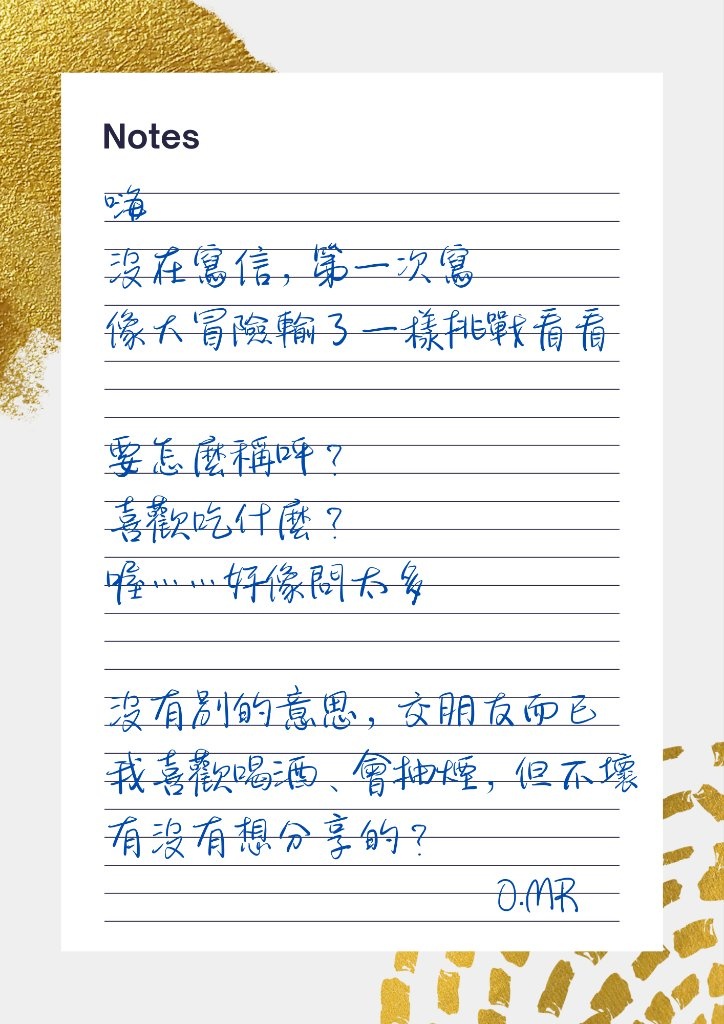 Notes
嗨
沒在寫信，第一次寫
像大冒險輸了一樣挑戰看看
要怎麼稱呼？
喜歡吃什麼？
喔⋯⋯好像問太多
沒有別的意思，交朋友而已
我喜歡喝酒、會抽煙，但不壞
有沒有想分享的？
O.MR